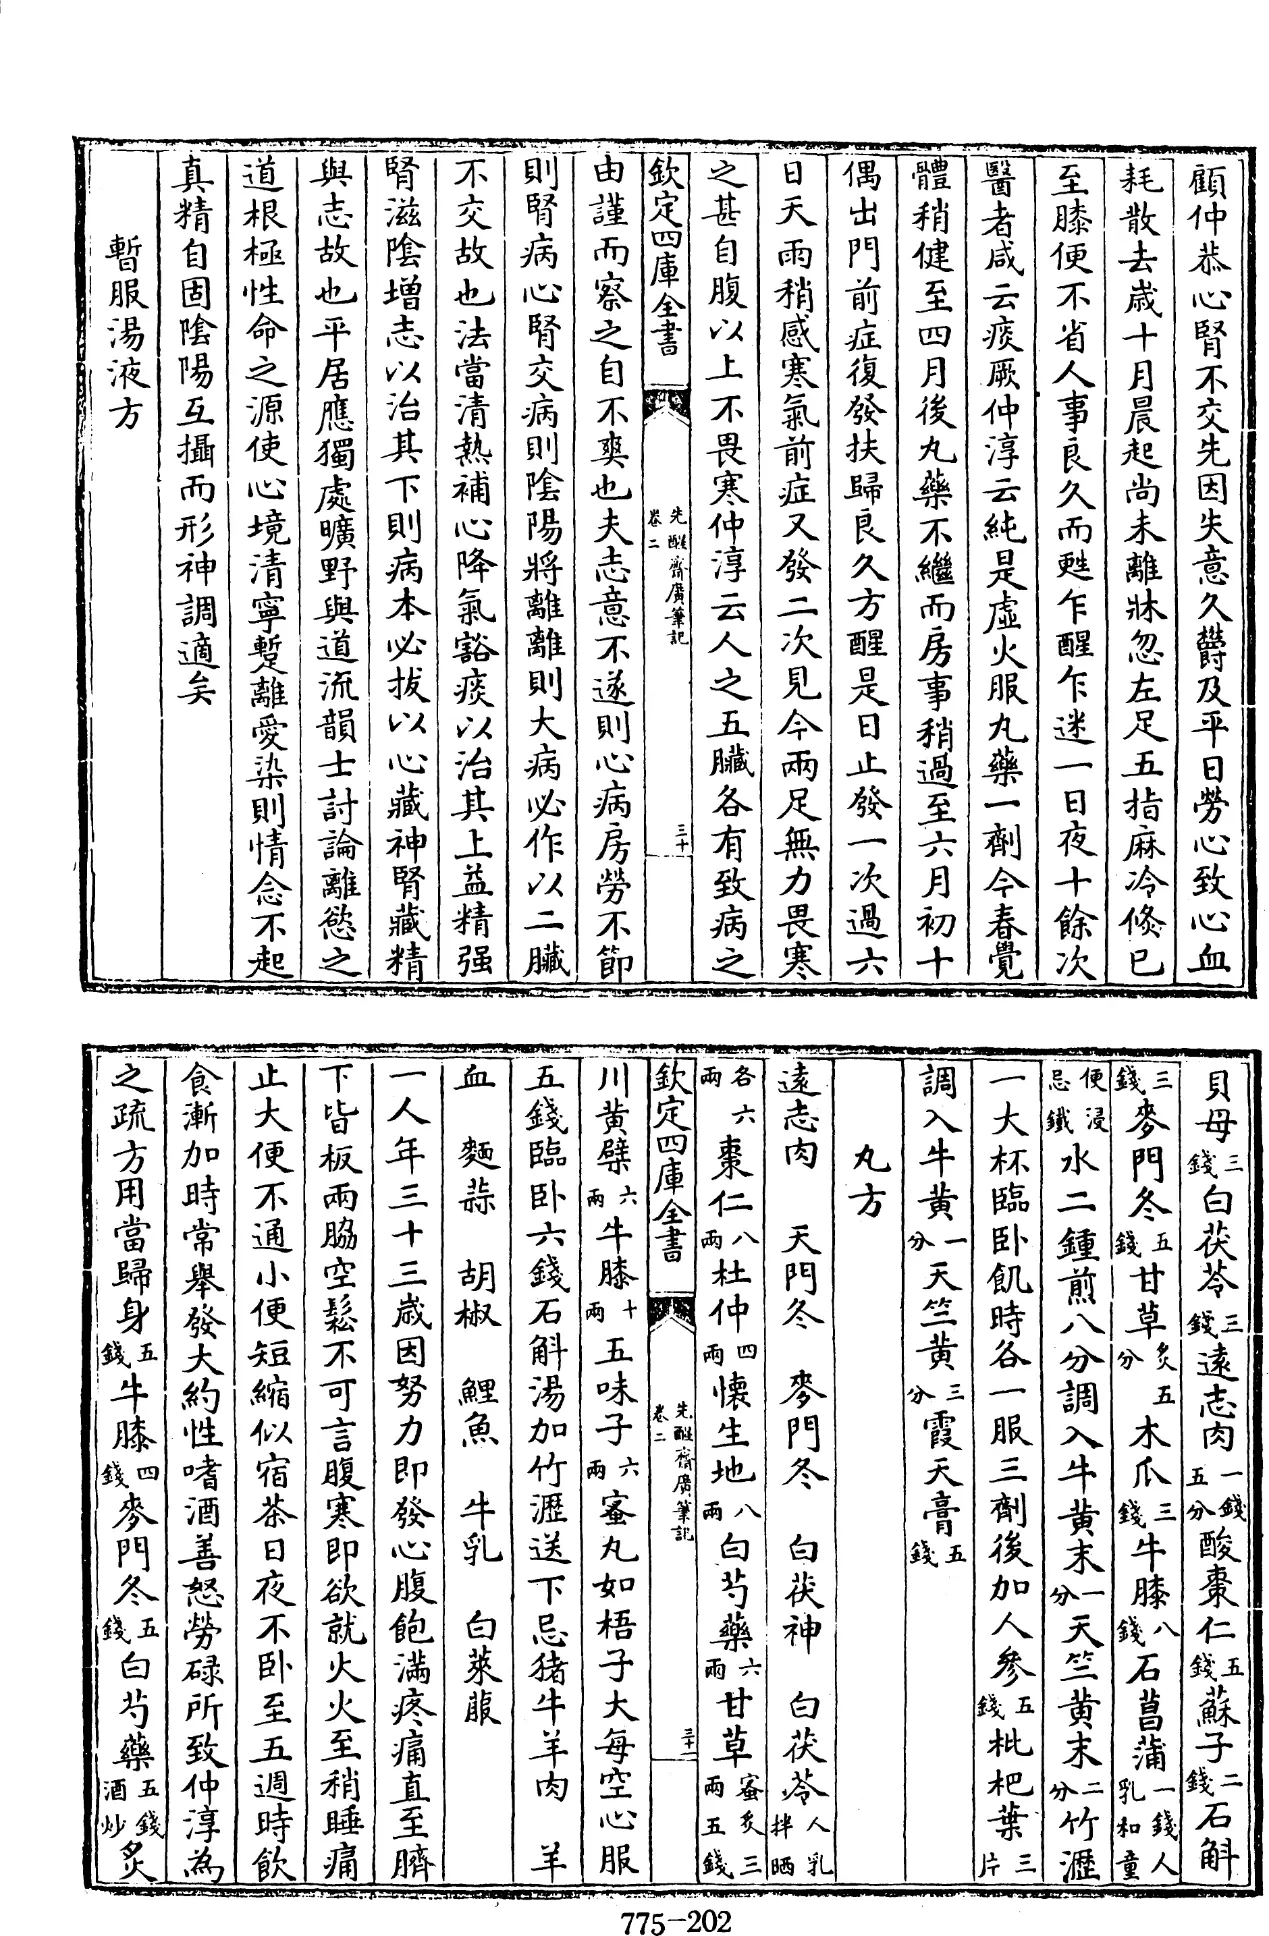 顧仲恭心腎不交先因失意久欝及平日勞心致心血
耗散去歳十月晨起尚未離牀忽左足五指麻冷倏已
至膝便不省人事良久而甦乍醒乍迷一日夜十餘次
醫者咸云痰厥仲淳云純是虛火服丸藥一劑今春覺
體稍健至四月後丸藥不繼而房事稍過至六月初十
偶出門前症復發扶歸良久方醒是日止發一次過六
日天雨稍感寒氣前症又發二次見今兩足無力畏寒
之甚自腹以上不畏寒仲淳云人之五臟各有致病之
欽定四庫全書
先醒齋廣筆記
卷二
三十
由謹而察之自不爽也夫志意不遂則心病房勞不節
則腎病心腎交病則陰陽將離離則大病必作以二臟
不交故也法當清熱補心降氣豁痰以治其上益精强
腎滋陰增志以治其下則病本必拔以心藏神腎藏精
與志故也平居應獨處曠野與道流韻士討論離慾之
道根極性命之源使心境清寧蹔離愛染則情念不起
真精自固陰陽互攝而形神調適矣
暫服湯液方
貝母三錢白茯苓三錢遠志肉一錢五分酸棗仁五錢蘇子二錢石斛
三錢麥門冬五錢甘草炙五分木瓜三錢牛膝八錢石菖蒲一錢人乳和童
便浸忌鐵水二鍾煎八分調入牛黄末一分天竺黄末二分竹瀝
一大杯臨卧飢時各一服三劑後加人參五錢枇杷葉三片
調入牛黄一分天竺黄三分霞天膏五錢
丸方
遠志肉　天門冬　麥門冬　白茯神　白茯苓人乳拌晒
各六兩棗仁八兩杜仲四兩懷生地八兩白芍藥六兩甘草蜜炙三兩五錢
欽定四庫全書
先醒齋廣筆記
卷二
三十一
川黄檗六兩牛膝十兩五味子六兩蜜丸如梧子大每空心服
五錢臨卧六錢石斛湯加竹瀝送下忌猪牛羊肉　羊
血　麵蒜　胡椒　鯉魚　牛乳　白萊菔
一人年三十三歳因努力即發心腹飽滿疼痛直至臍
下皆板兩脇空鬆不可言腹寒即欲就火火至稍睡痛
止大便不通小便短縮似宿茶日夜不卧至五週時飲
食漸加時常舉發大約性嗜酒善怒勞碌所致仲淳為
之疏方用當歸身五錢牛膝四錢麥門冬五錢白芍藥五錢酒炒炙
775-202